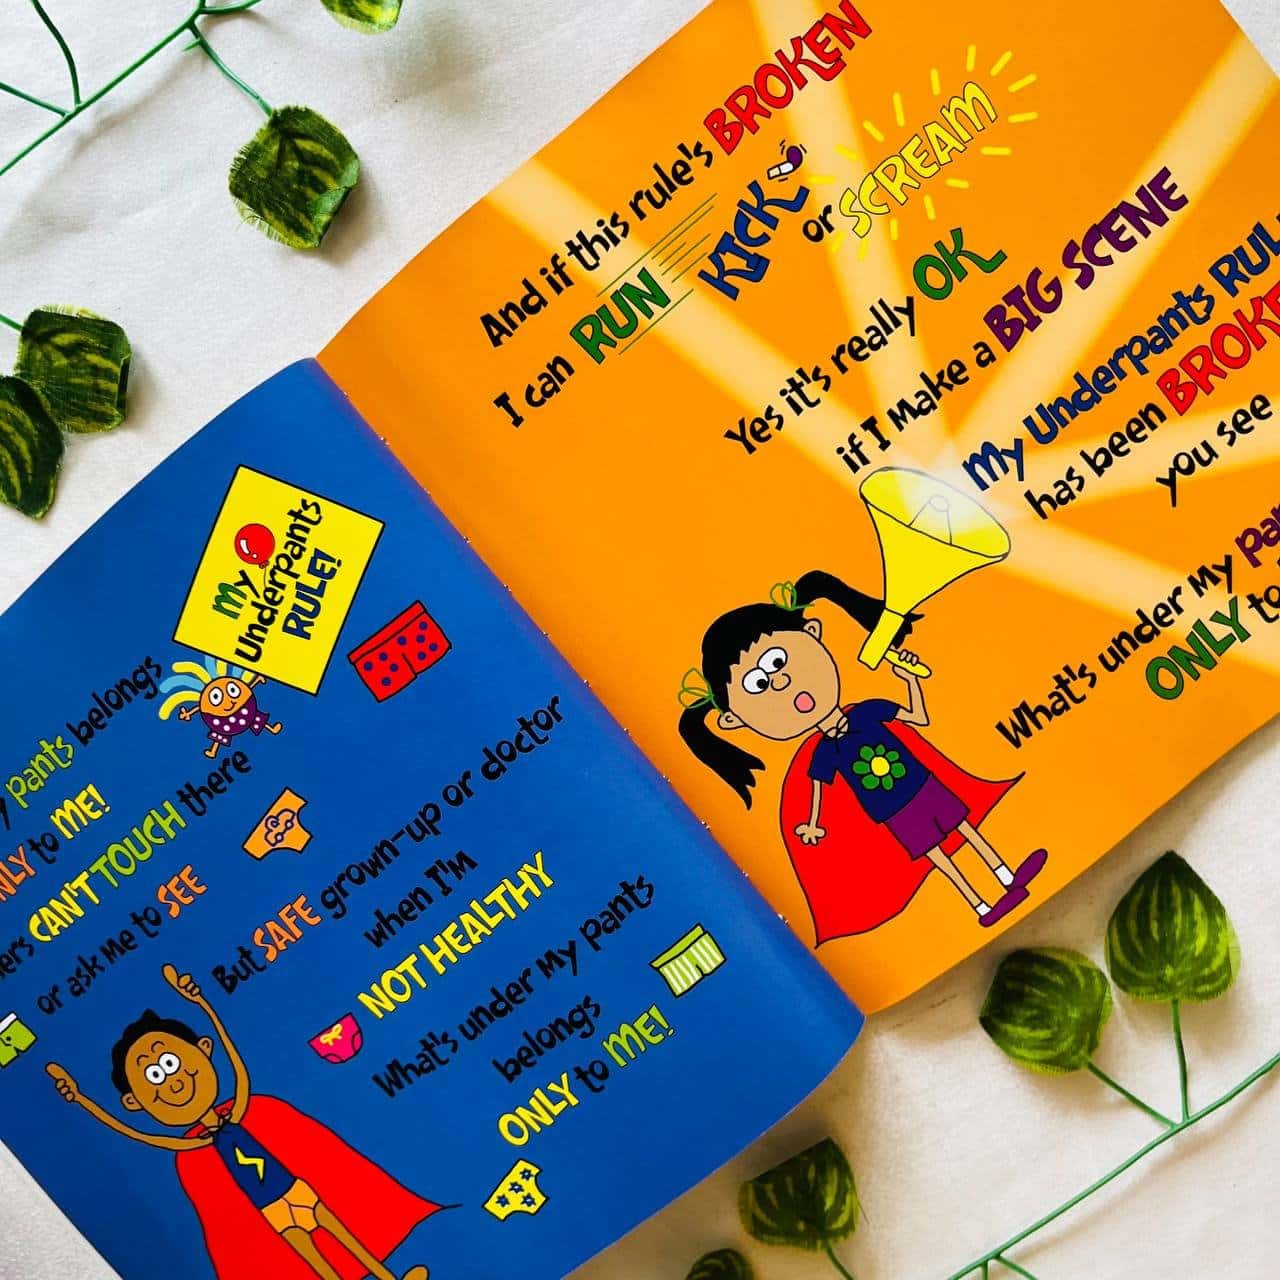 My
Underpants
RULE!
pants belongs
to ME!
CAN'T TOUCH there
or ask me to SEE
But SAFE grown-up or doctor
when I'm
NOT HEALTHY
What's under My pants
belongs
ONLY to ME!
And if this rule's BROKEN
I can RUN KICK or SCREAM
Yes it's really OK
if I Make a BIG SCENE
My Underpants
has been
you see
What's under My
ONLY to